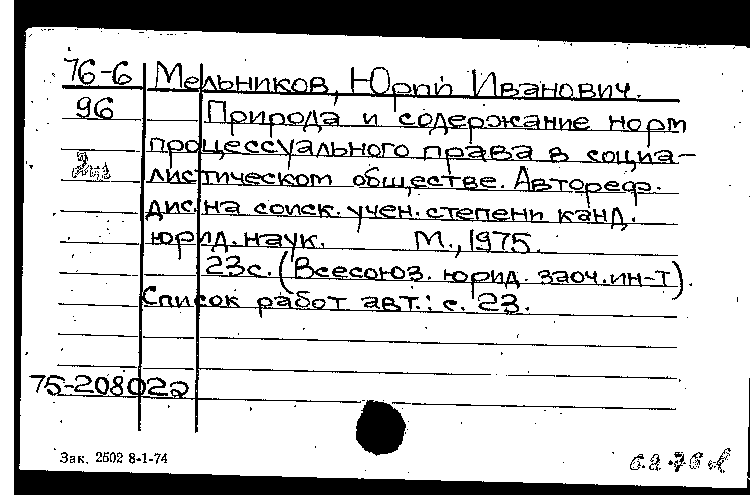 76-6 Мельников, Юрий Иванович.
96 Природа и содержание норм
процессуального права в социа-
листическом обществе. Автореф.
дис. на соиск. учен. степени канд.
юрид. наук. М., 1975.
23с. (Всесоюз. юрид. заоч. ин-т).
Список работ авт.: с. 23.
75-208022
Зак. 2502 8-1-74